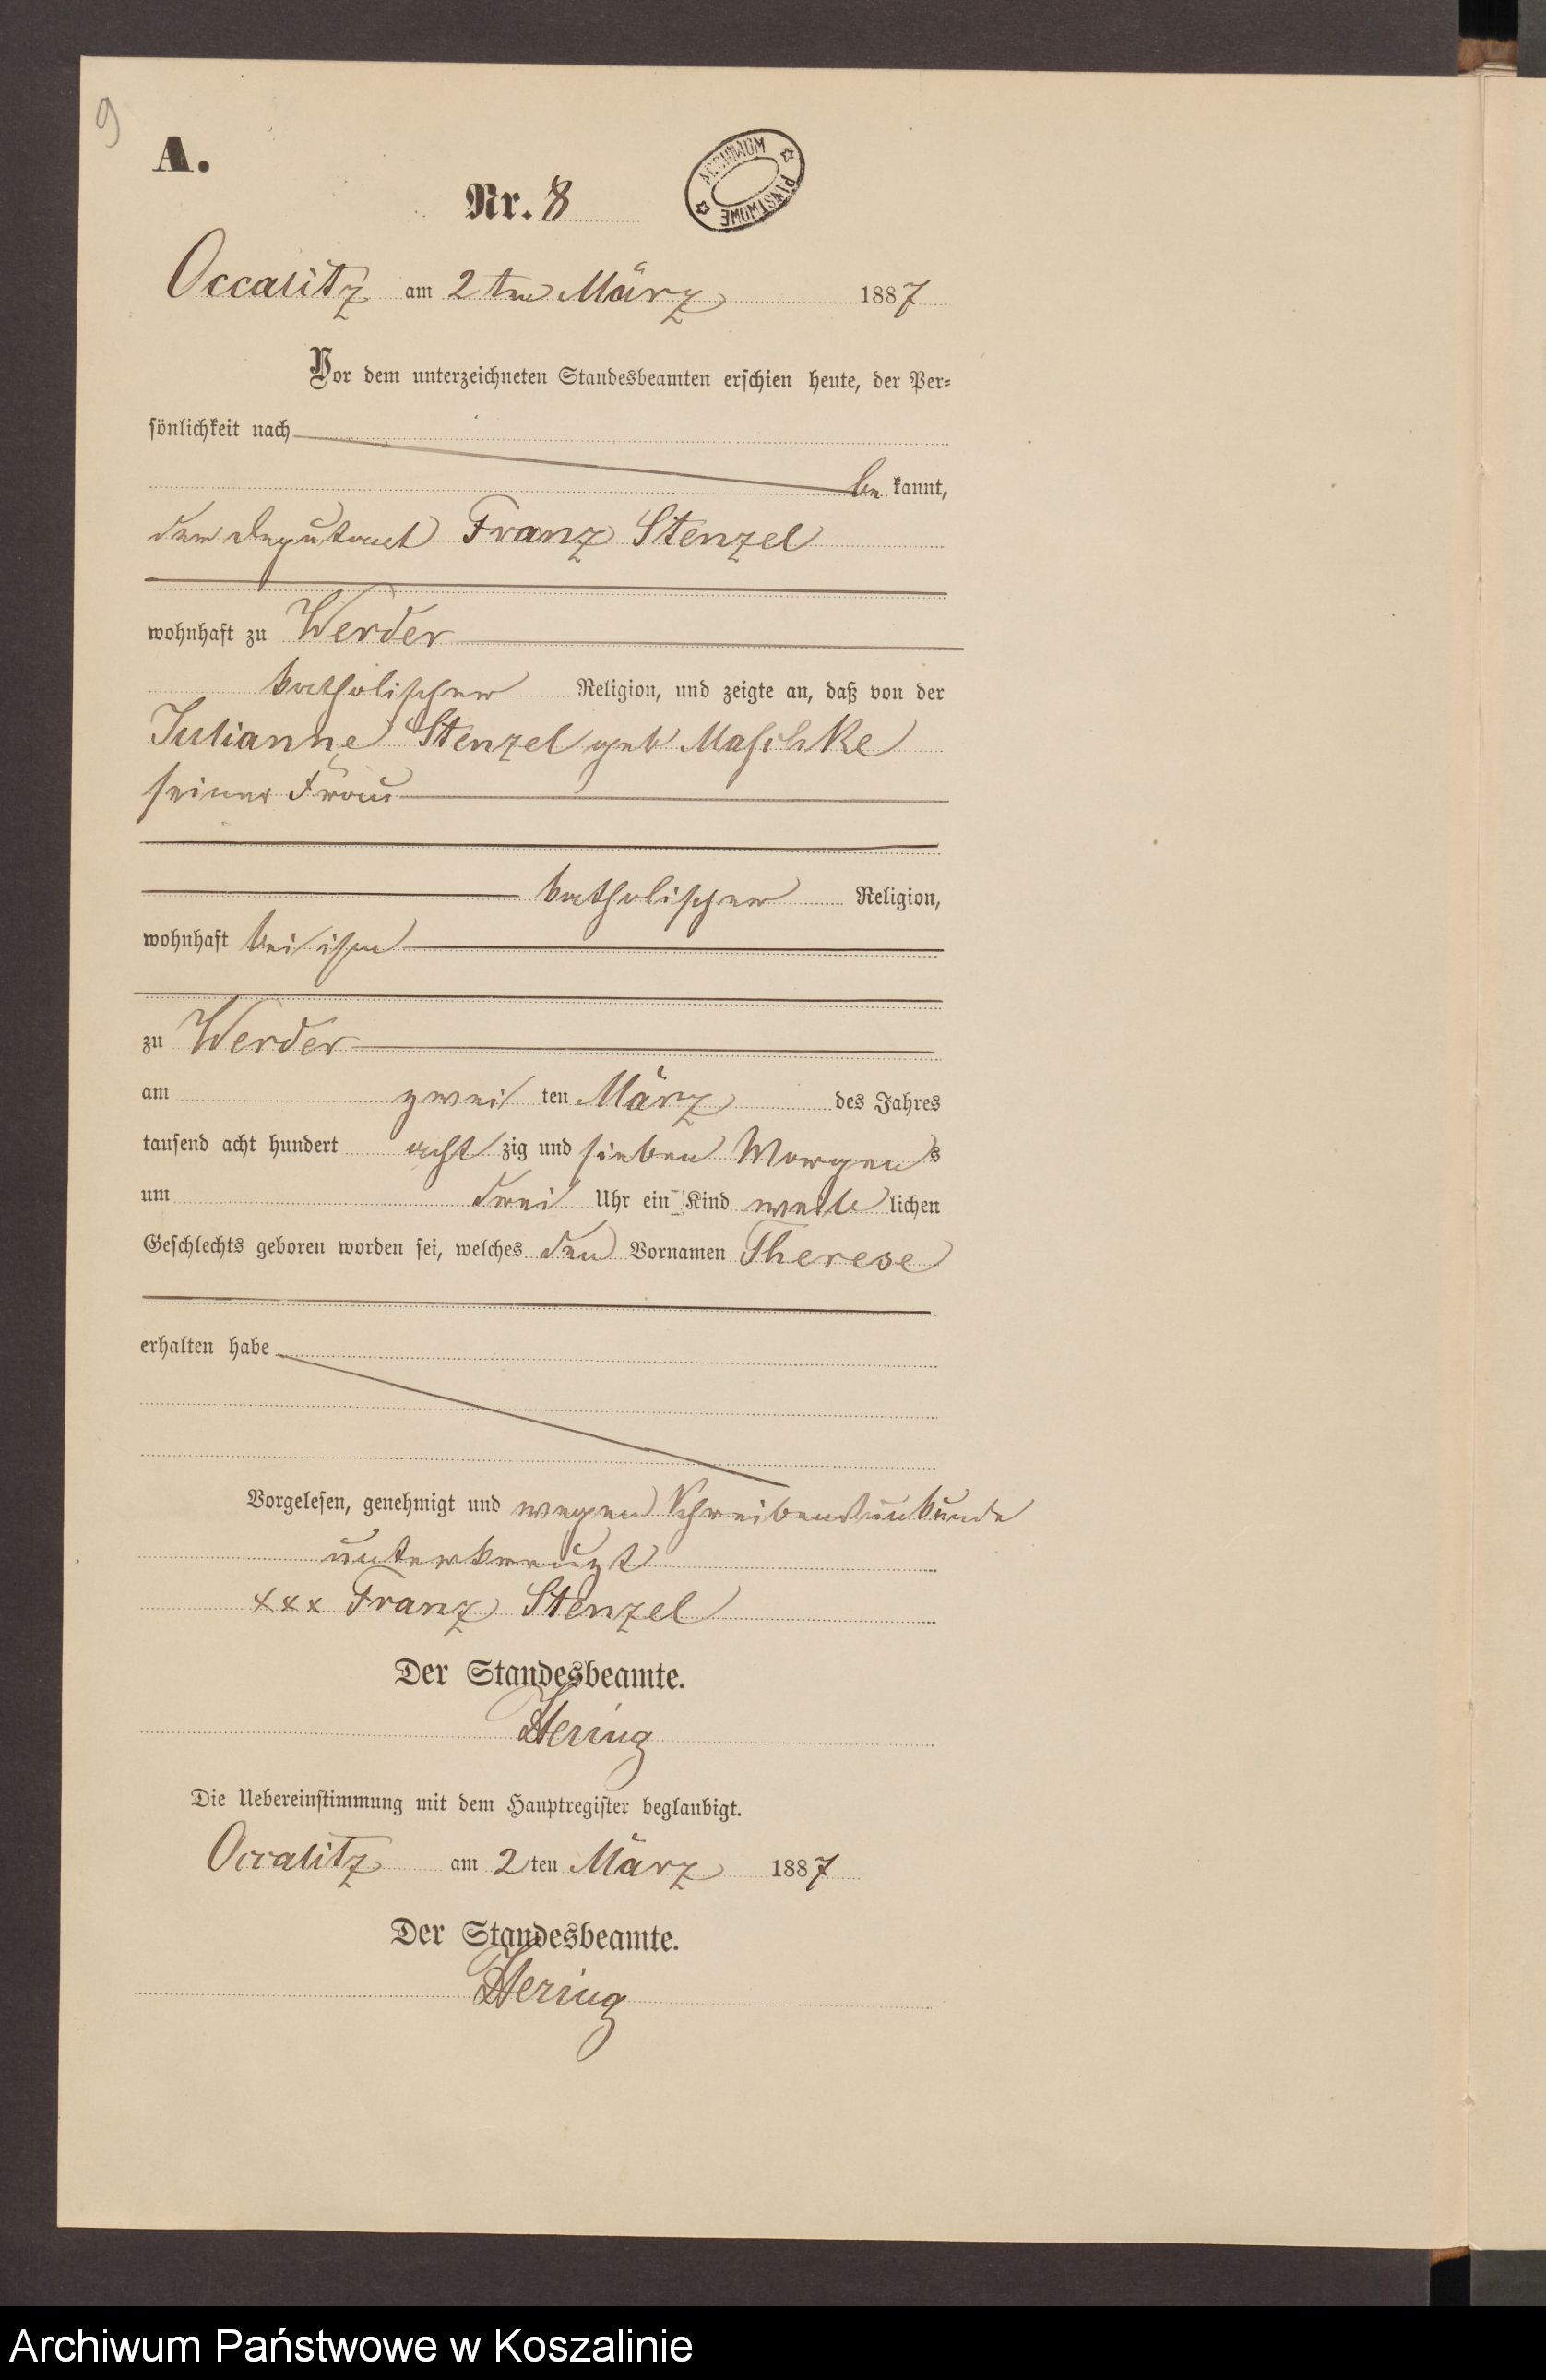 9
A.
Nr. 8
ARCHIWUM PAŃSTWOWE
Occalitz am 2ten März 1887
Vor dem unterzeichneten Standesbeamten erschien heute, der Per-
sönlichkeit nach
be kannt,
der Deputant Franz Stenzel
wohnhaft zu Werder
katholischer Religion, und zeigte an, daß von der
Julianne Stenzel geb Maschke
seiner Frau
katholischer Religion,
wohnhaft bei ihm
zu Werder
am zwei ten März des Jahres
tausend acht hundert acht zig und sieben Morgens
um drei Uhr ein Kind weib lichen
Geschlechts geboren worden sei, welches den Vornamen Therese
erhalten habe
Vorgelesen, genehmigt und wegen Schreibensunkunde
unterkreuzt
xxx Franz Stenzel
Der Standesbeamte.
Hering
Die Uebereinstimmung mit dem Hauptregister beglaubigt.
Occalitz am 2ten März 1887
Der Standesbeamte.
Hering
Archiwum Państwowe w Koszalinie